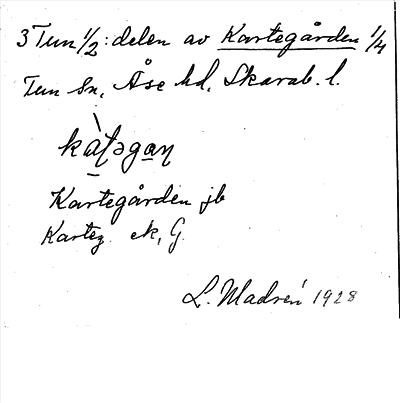 3 Tun 1/2: delen av Kartegården 1/4
Tun Sn, Åse hd, Skarab. l.
Kartegården jb
Karteg. ek, G.
L. Madrén 1928